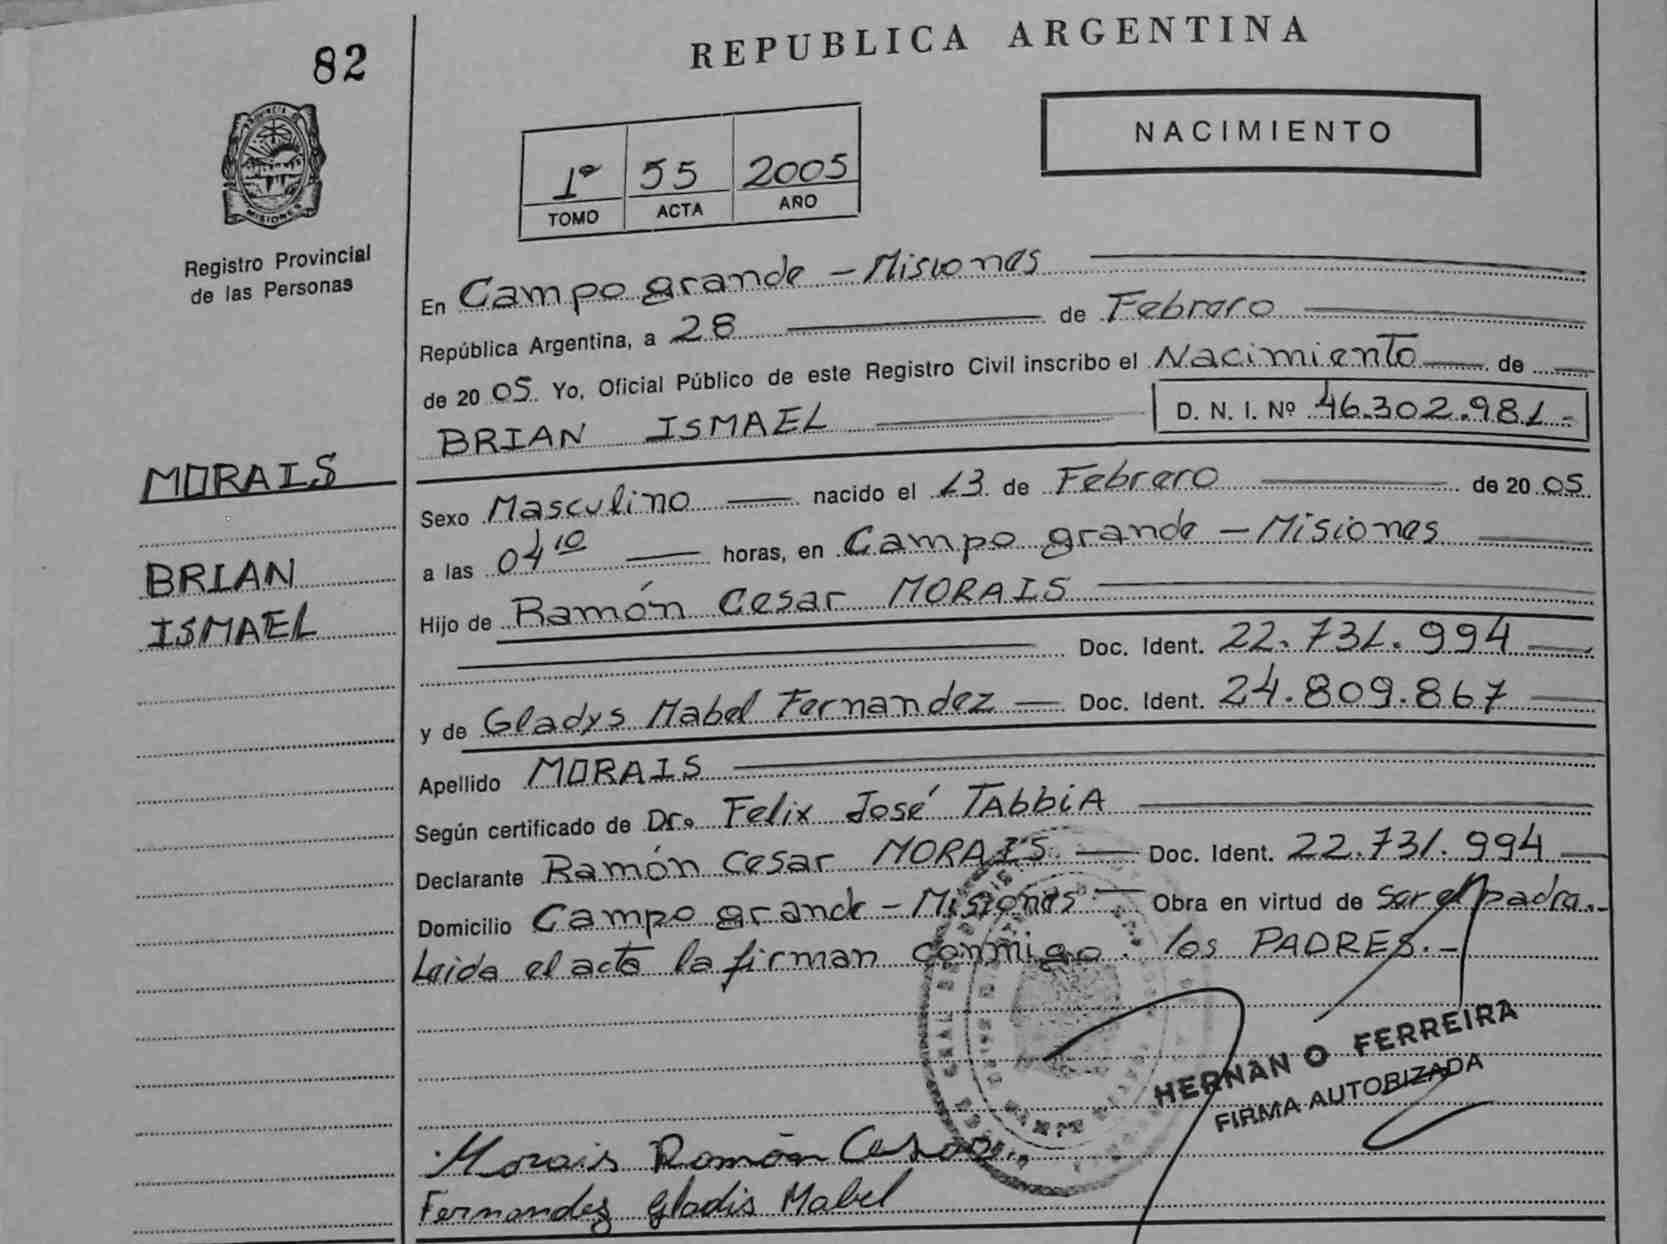 82
REPUBLICA ARGENTINA
NACIMIENTO
1º 55 2005
TOMO ACTA AÑO
PROVINCIA DE
MISIONES
Registro Provincial
de las Personas
En Campo grande - Misiones
República Argentina, a 28 de Febrero
de 20 05. Yo, Oficial Público de este Registro Civil inscribo el Nacimiento de
BRIAN ISMAEL D. N. I. Nº 46.302.981.-
MORAIS
Sexo Masculino nacido el 13 de Febrero de 20 05
a las 04 10 horas, en Campo grande - Misiones
BRIAN
Hijo de Ramón Cesar MORAIS
ISMAEL
Doc. Ident. 22.731.994
y de Gladys Mabel Fernandez Doc. Ident. 24.809.867
Apellido MORAIS
Según certificado de Dr. Felix José TAbbiA
Declarante Ramón Cesar MORAIS. Doc. Ident. 22.731.994
Domicilio Campo grande - Misiones Obra en virtud de ser el padre.
Leida el acta la firman conmigo. los PADRES.-
HERNAN O FERREIRA
FIRMA AUTORIZADA
Morais Ramón Cesar.
Fernandez Gladis Mabel